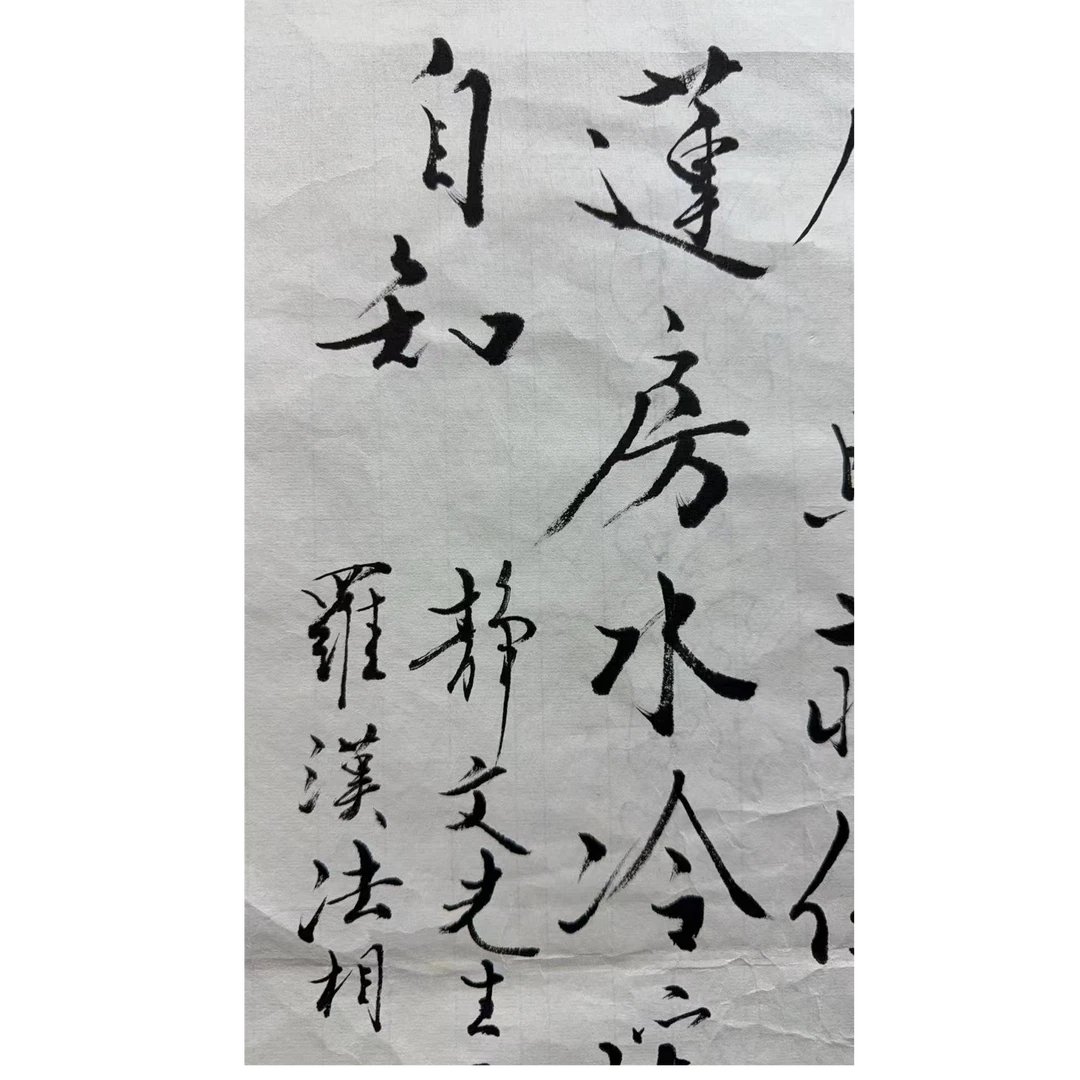 蓮房水冷
自知
静文先生
羅漢法相